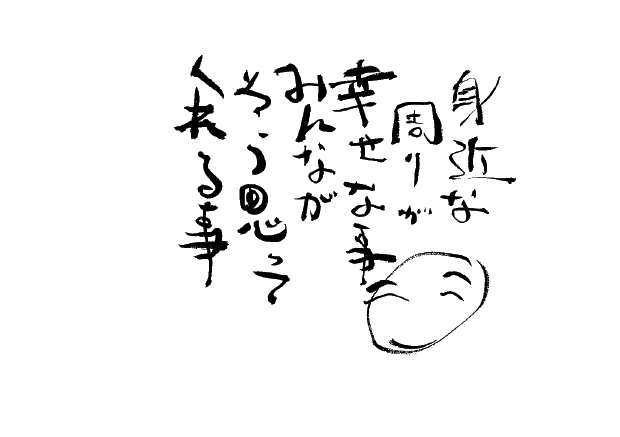 身近な
周りが
幸せな事
みんなが
そう思って
くれる事